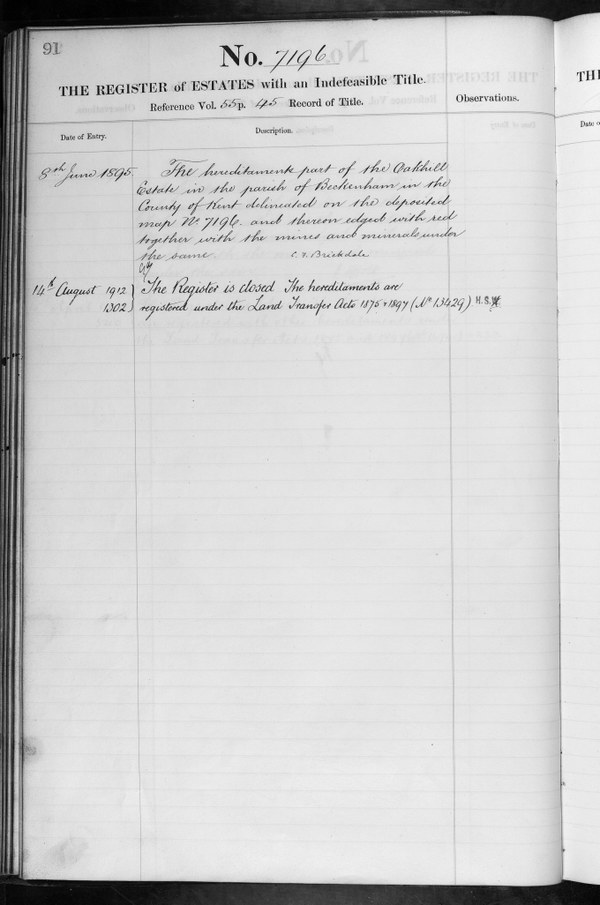 91
No. 7196
THE REGISTER of ESTATES with an Indefeasible Title.
Reference Vol. 55 p. 45 Record of Title.
Observations.
Date of Entry.
Description.
8th June 1895
The hereditaments part of the Oakhill
Estate in the parish of Beckenham in the
County of Kent delineated on the deposited
map No 7196 and thereon edged with red
together with the mines and minerals under
the same.
C. F. Brickdale
14th August 1912
The Register is closed The hereditaments are
1302
registered under the Land Transfer Acts 1875 & 1897 (No 13429) H.S.
THE
Date o